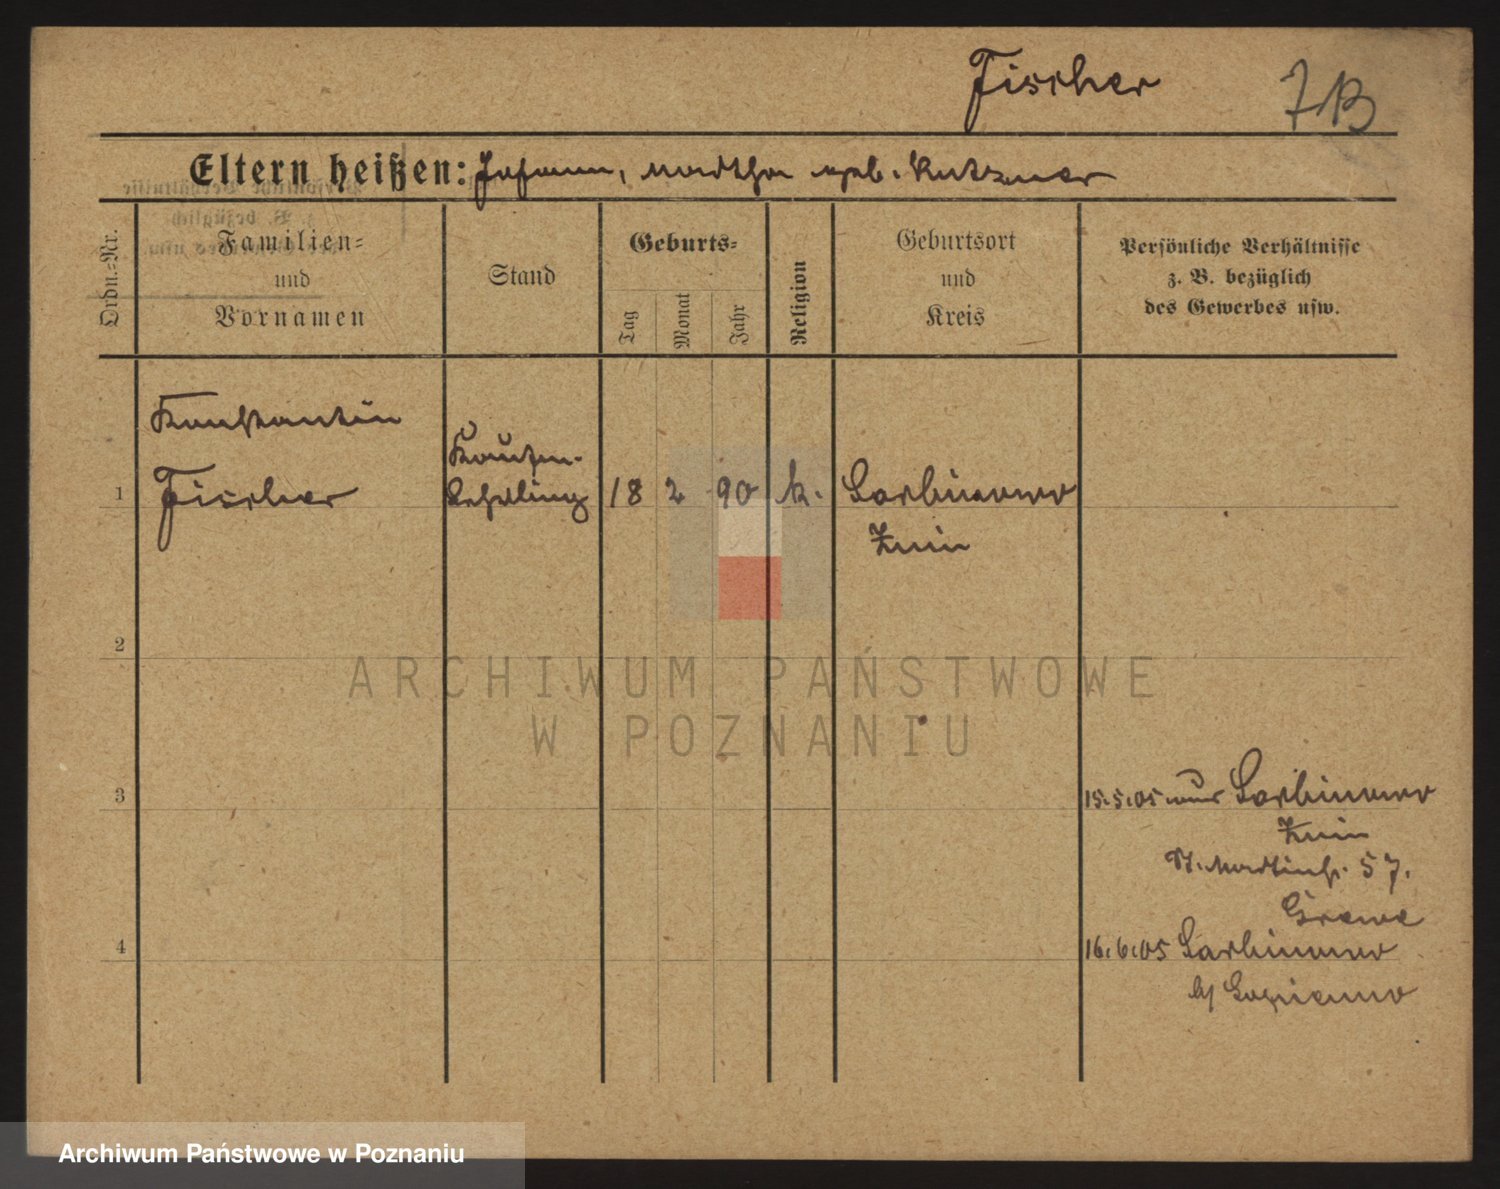 Fischer
7B
Eltern heißen: Johann, Martha geb. Kutzner
Ordn.-Nr.
Familien-
und
Vornamen
Stand
Geburts-
Tag
Monat
Jahr
Religion
Geburtsort
und
Kreis
Persönliche Verhältnisse
z. B. bezüglich
des Gewerbes usw.
1
Konstantin
Fischer
Kaufm.-
Lehrling
18
2
90
k.
Sarbinowo
Znin
2
ARCHIWUM PAŃSTWOWE
W POZNANIU
3
15.5.05 aus Sarbinowo
Znin
St. Martinstr. 57.
4
16.6.05 Sarbinowo
Archiwum Państwowe w Poznaniu